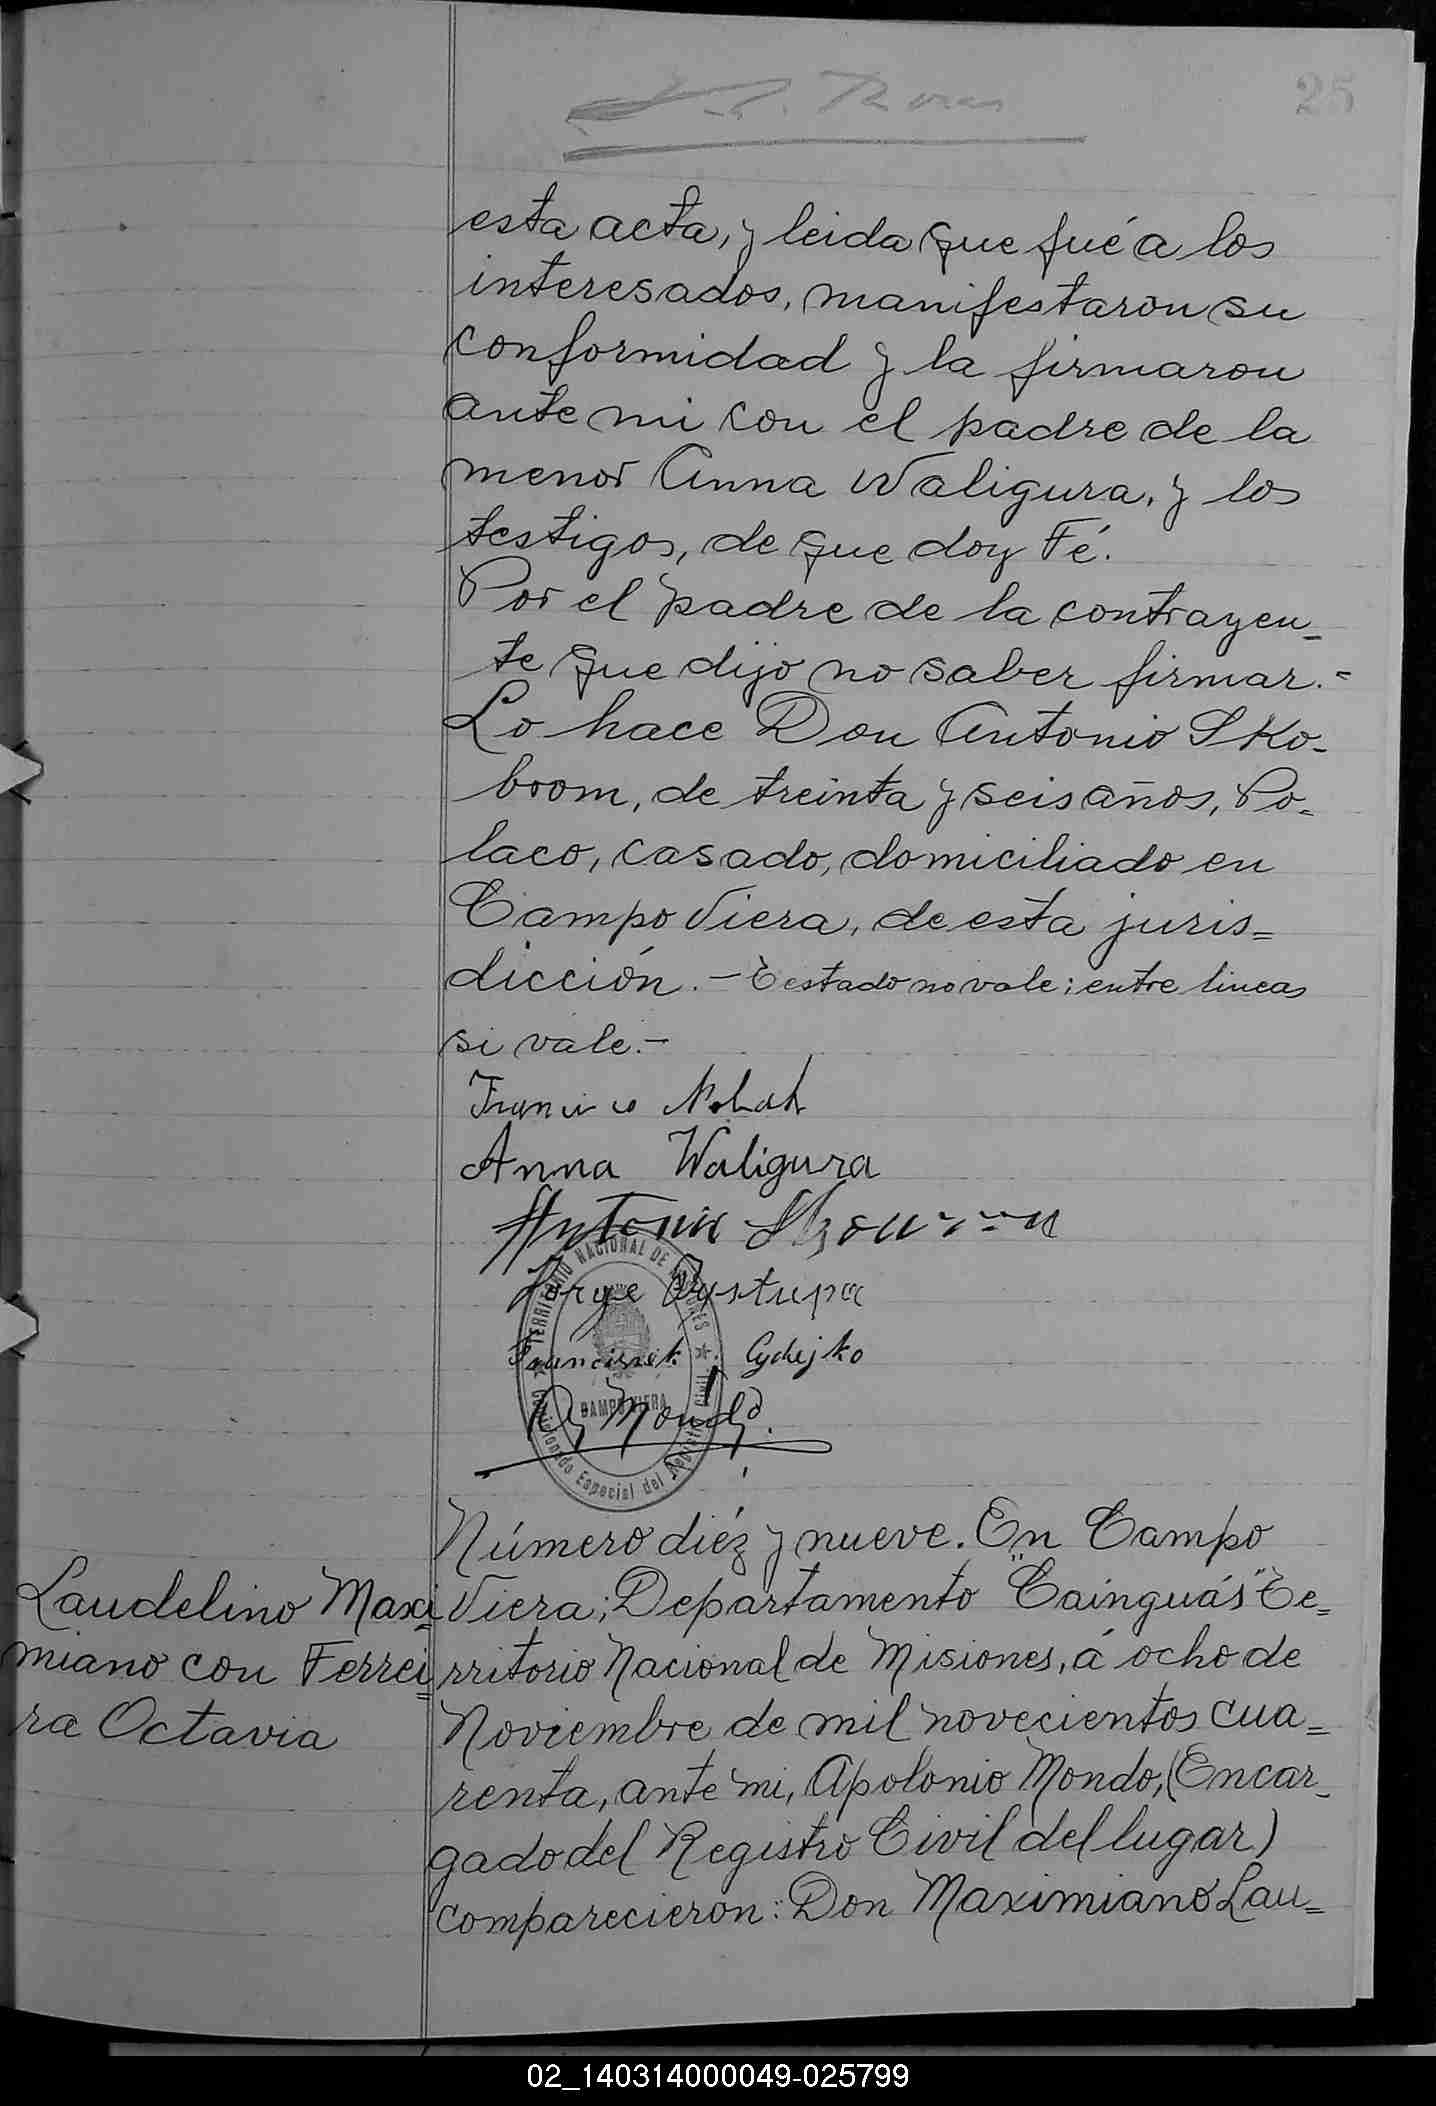 25
esta acta, y leida que fué a los
interesados, manifestaron su
conformidad y la firmaron
ante mi con el padre de la
menor Anna Waligura, y los
testigos, de que doy Fé.
Por el padre de la contrayen-
te que dijo no saber firmar.=
Lo hace Don Antonio Sko-
broom, de treinta y seis años, Po=
laco, casado, domiciliado en
Campo Viera, de esta juris=
dicción.- Testado no vale; entre lineas
si vale.-
Francisco
Anna Waligura
Antonio
Jorge Prystupa
Franciszek
Ap Mondo.
TERRITORIO NACIONAL DE MISIONES
CAMPO VIERA
Comisionado Especial del Registro Civil
Laudelino Maxi=
miano con Ferrei=
ra Octavia
Número diéz y nueve. En Campo
Viera; Departamento "Cainguás" Te=
rritorio Nacional de Misiones, á ocho de
Noviembre de mil novecientos cua=
renta, ante mi, Apolonio Mondo, (Encar-
gado del Registro Civil del lugar)
comparecieron: Don Maximiano Lau=
02_140314000049-025799